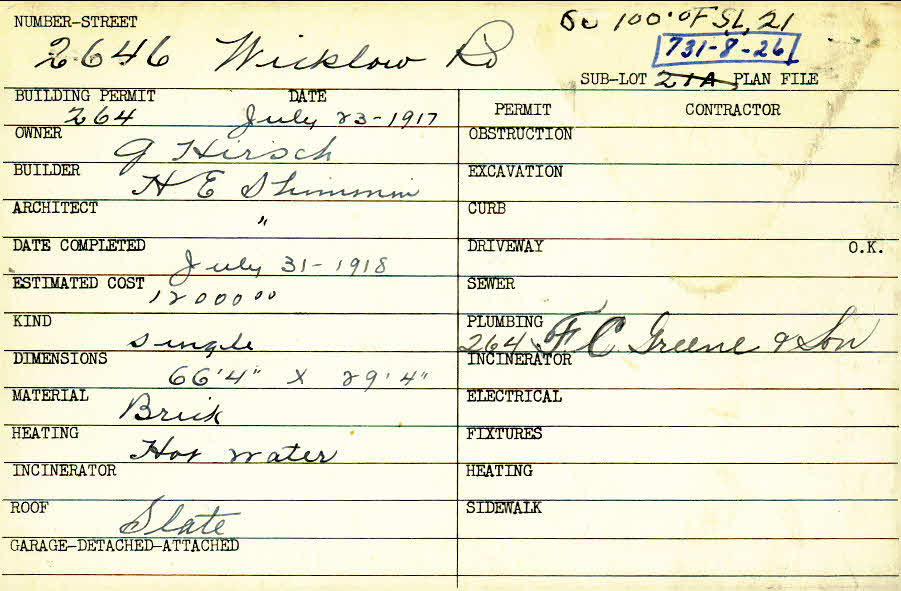 NUMBER-STREET
So 100' OF SL, 21
2646 Wicklow Rd
731-8-26
SUB-LOT 21A, PLAN FILE
BUILDING PERMIT DATE
264 July 23-1917
PERMIT CONTRACTOR
OWNER
G Hirsch
OBSTRUCTION
BUILDER
H E Shimmin
EXCAVATION
ARCHITECT
"
CURB
DATE COMPLETED
July 31-1918
DRIVEWAY O.K.
ESTIMATED COST
12000 00
SEWER
KIND
single
PLUMBING
264 F C Greene & Son
DIMENSIONS
66'4" X 29'4"
INCINERATOR
MATERIAL
Brick
ELECTRICAL
HEATING
Hot water
FIXTURES
INCINERATOR
HEATING
ROOF
Slate
SIDEWALK
GARAGE-DETACHED-ATTACHED